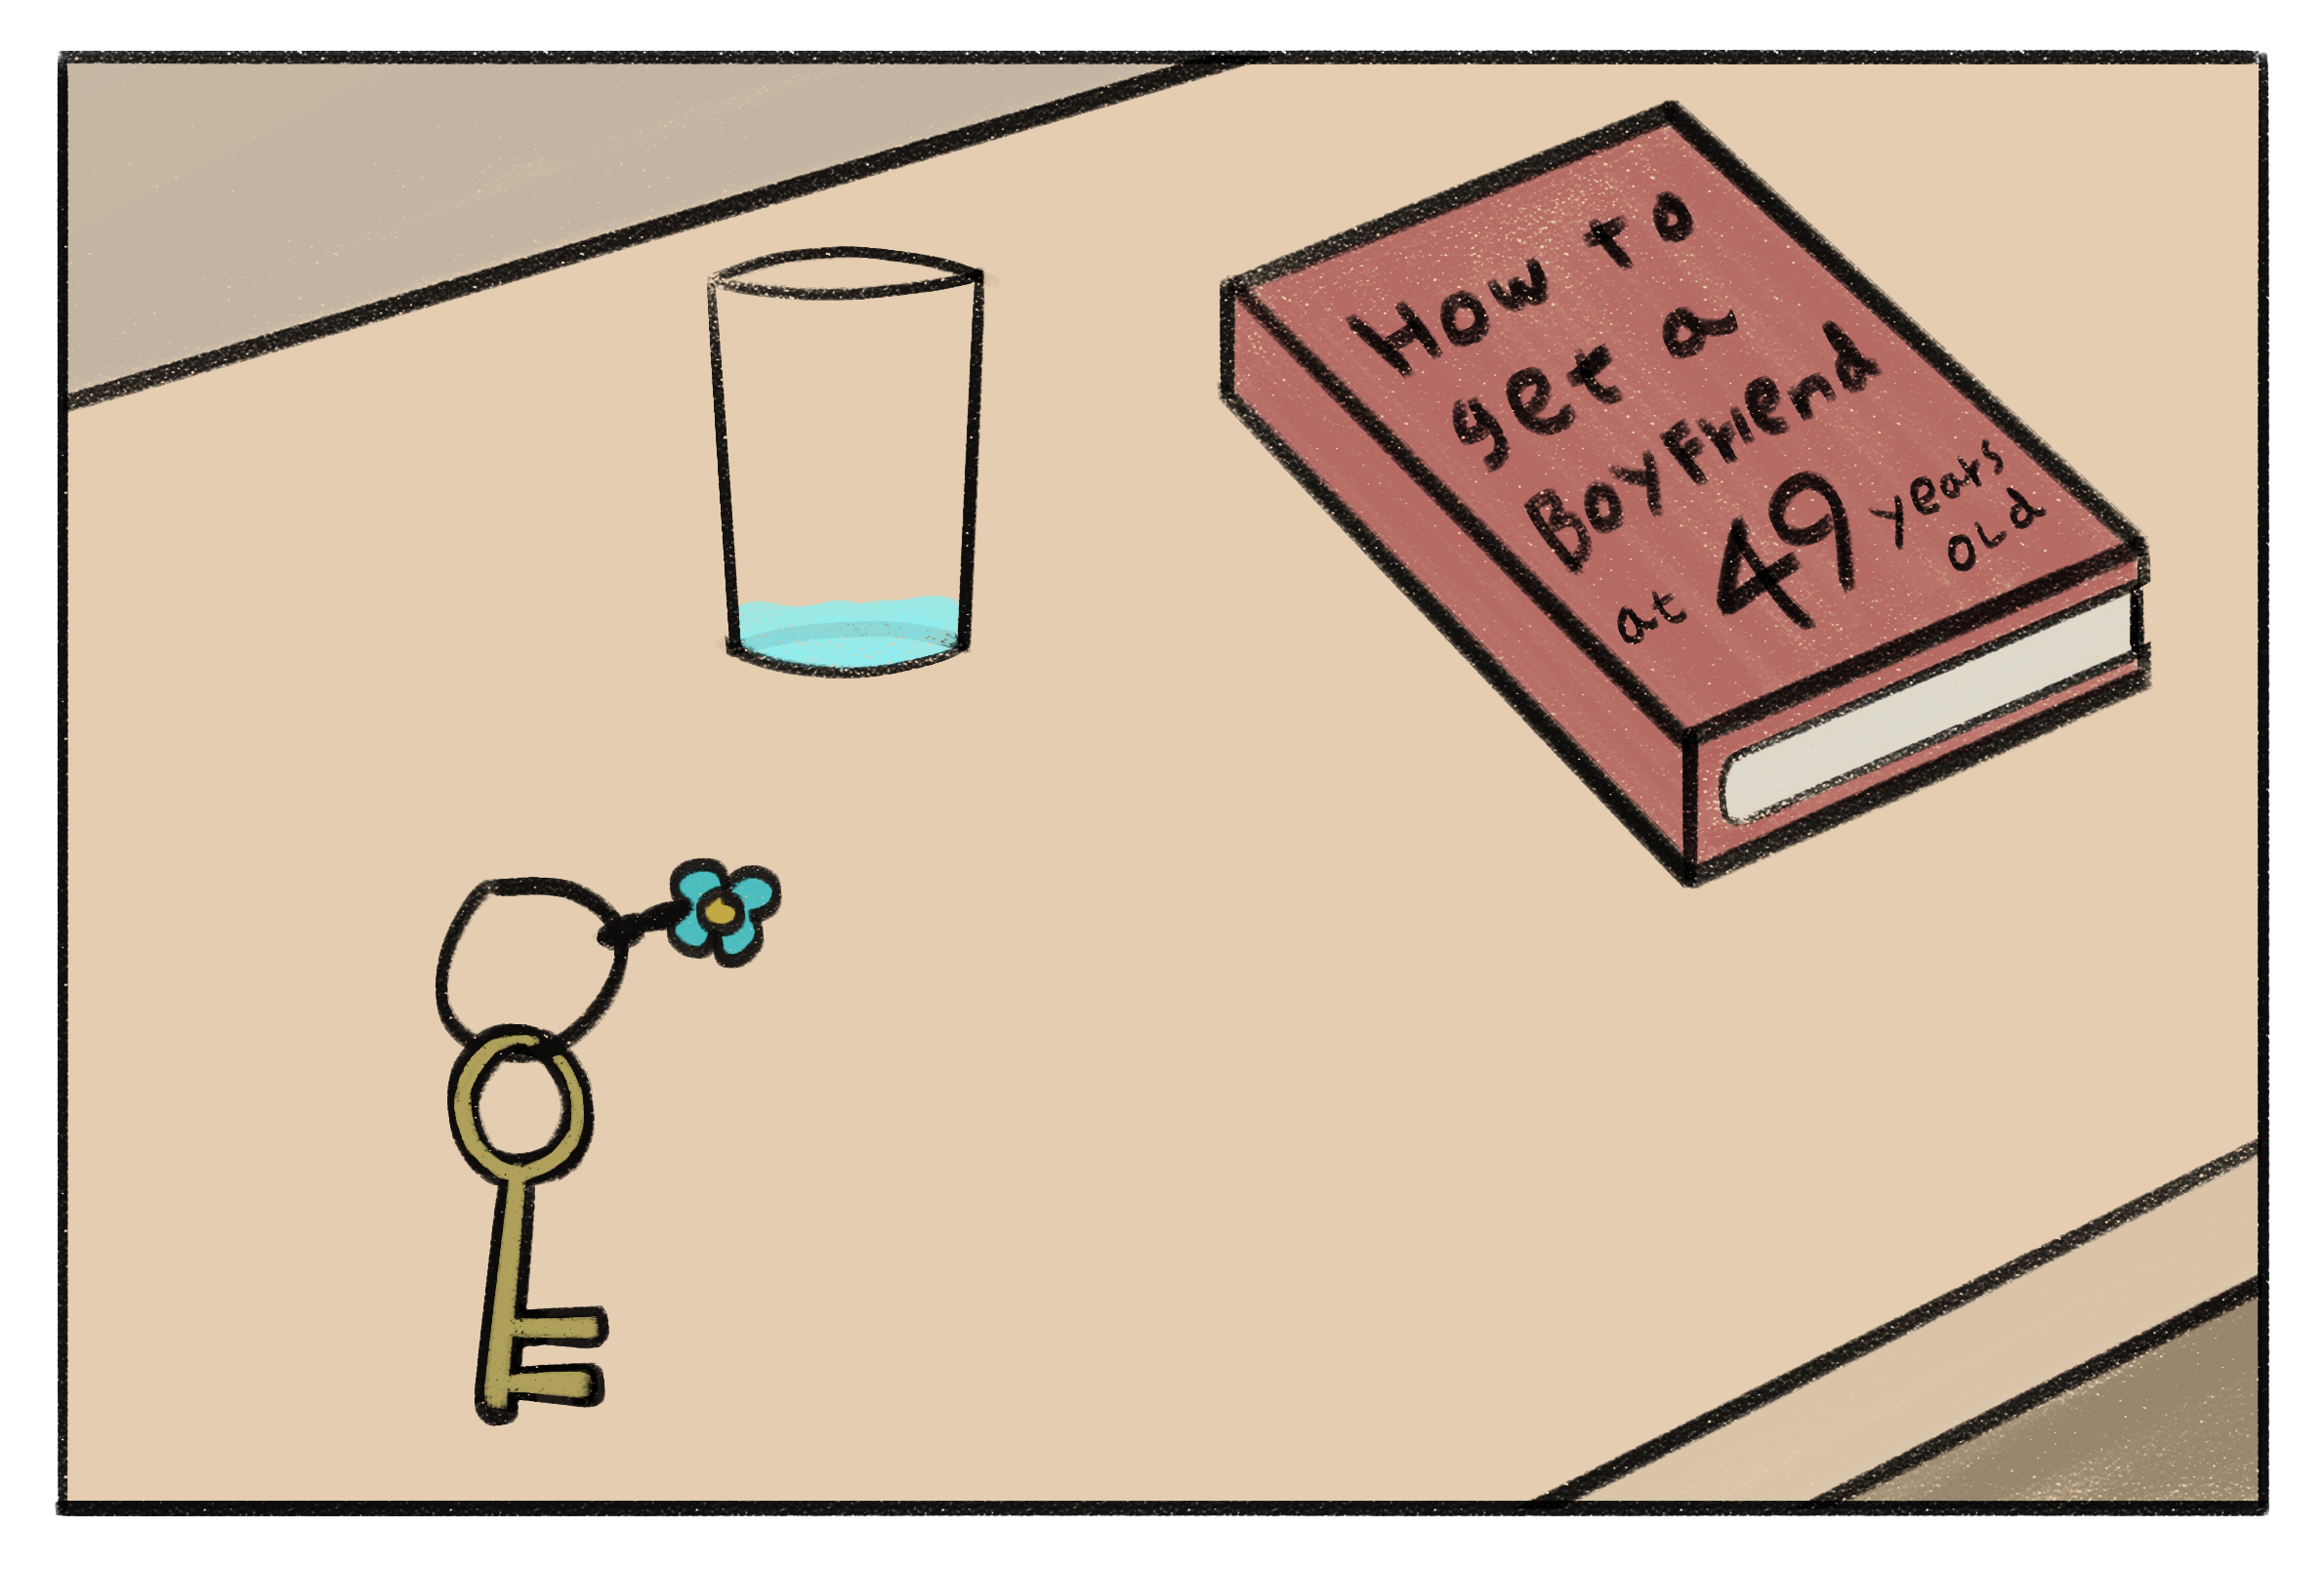 How to
get a
BoyFriend
at 49 years
OLd